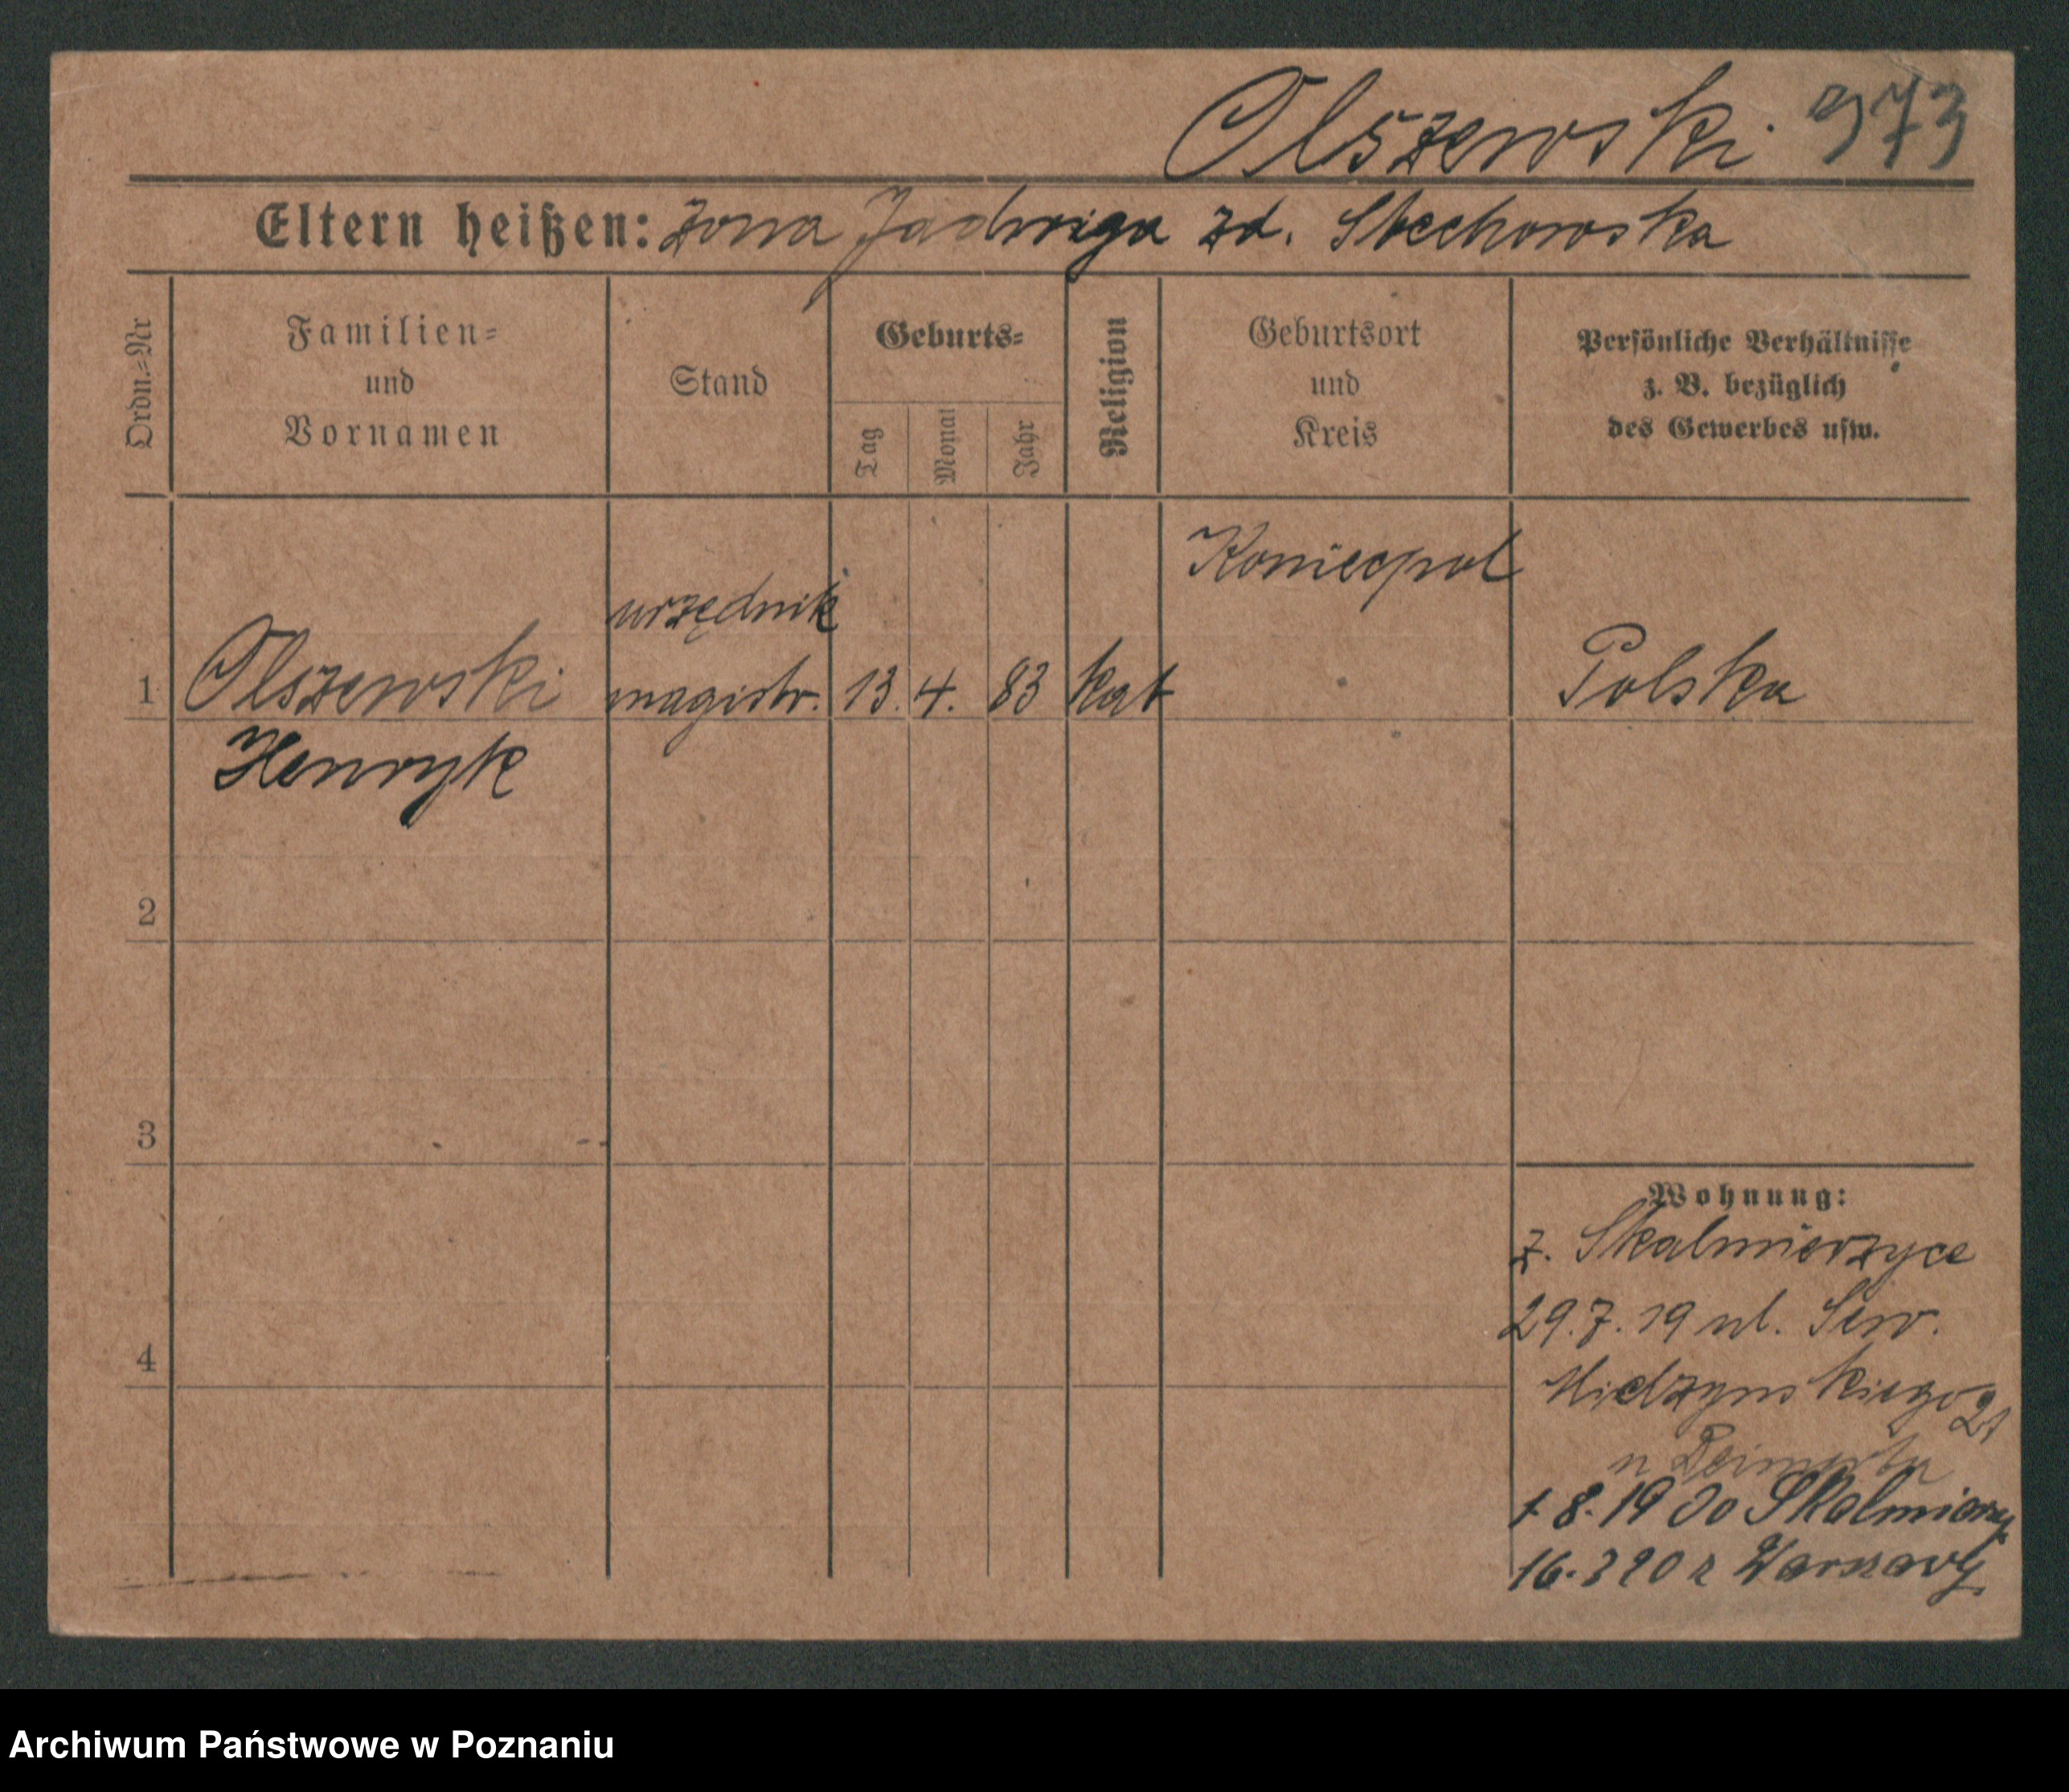 Olszewski 973
Eltern heißen: żona Jadwiga zd. Stechowska
Ordn.=Nr
Familien=
und
Vornamen
Stand
Geburts=
Tag
Monat
Jahr
Religion
Geburtsort
und
Kreis
Persönliche Verhältnisse
z. B. bezüglich
des Gewerbes usw.
1 Olszewski urzędnik magistr. 13. 4. 83 kat Koniecpol Polska
Henryk
2
3
4
Wohnung:
z. Skalmierzyce
29.7.19 ul. Sew.
Mielżyńskiego 21
u
1 8.19 do Skalmierzy
16.3 20 z Warszawy
Archiwum Państwowe w Poznaniu